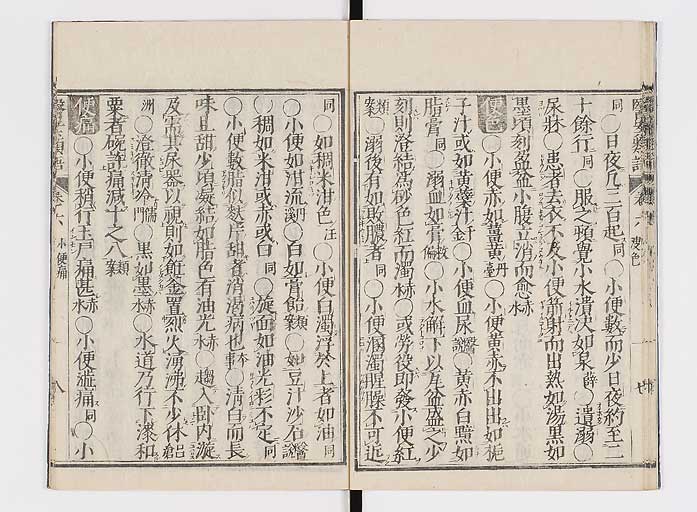 同○日夜凡二三百起同○小便數而少日夜約至二
十餘行同○服之頓覺小水潰決如泉薛○遺溺○
尿牀○患者去衣不及小便箭射而出熱如湯黑如
墨頃刻盈盆小腹立消而愈赤水
便色○小便赤如薑黃丹臺○小便黃赤不出出如梔
子汁或如黃蘗汁千金○小便血尿醫說○黃赤白黯如
脂膏同○溺血如膏○小水澥下以瓦盆盛之少
刻則澄結爲砂色紅而濁赤水○或勞役即發小便紅
類案○溺後有如敗膿者同○小便溷濁腥臊不可近
同○如稠米泔色汪○小便白濁浮於上者如油同
○小便如泔流○白如膏飴類案○如豆汁沙石醫說
○稠如米泔或赤或白同○旋面如油光彩不定同
○小便數脂似麩片甜者消渴病也本事○淸白而長
味且甜少頃凝結如脂色有油光赤水○趨入臥內漩
及需其尿器以視則如釭釜置烈火涌沸不少休呂
洲○澄徹淸冷儒門○黑如墨赤水○水道乃行下漆和
粟者碗許痛減十之八類案
便痛○小便稍行玉戶痛甚赤水○小便澁痛同○小
卷六
小便痛
八